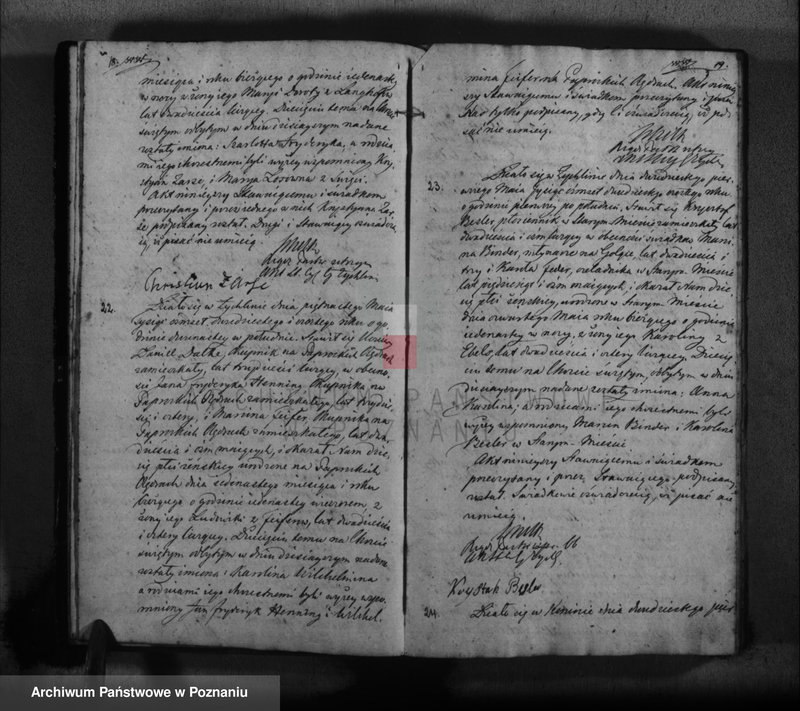 18.
miesiąca i roku bieżącego o godzinie jedenastej
w nocy z żony jego Maryi Doroty z
lat dwadzieścia liczącej. Dziecięciu temu na Chrzcie
świętym odbytym w dniu dzisiejszym nadane
zostały imiona: Szarlotta Fryderyka, a rodzi-
cami jego chrzestnemi byli wyżej wspomniony Kry-
styan Zarze, i Marya
Akt niniejszy Stawaiącemu i świadkom
przeczytany i przez iednego z nich Krystyana Zar-
ze podpisany został. Drugi i Stawaiący oświadcza-
ią, iż pisać nie umieią.
Christian Zarse
22.
Działo się w Tychlinie dnia piętnastego Maia
tysiąc ośmset dwudziestego i ósmego roku o go-
dzinie dwunastey w południe. Stawił się
Daniel Dalke, Okupnik na Paprockich Olędrach
zamieszkały, lat trzydzieści liczący, w obecno-
ści Jana Fryderyka Henning, Okupnika na
Paprockich Olędrach zamieszkałego, lat trzydzie-
ści i cztery, i Marcina Feifer, Okupnika na
Paprockich Olędrach zamieszkałego, lat dwa-
dzieścia i ośm maiących, i okazał Nam dzie-
cię płci żeńskiey urodzone na Paprockich
Olędrach dnia iedenastego miesiąca i roku
bieżącego o godzinie iedenastey wieczorem, z
żony iego Ludwiki z Feiferów, lat dwadzieścia
i cztery liczącey. Dziecięciu temu na Chrzcie
świętym odbytym w dniu dzisiayszym nadane
zostały imiona: Karolina Wilchelmina
a rodzicami iego chrzestnemi byli wyżey wspo-
mniony Jan Fryderyk Henning i Wilchel-
19.
mina Feiferin z Paprockich Olędrach. Akt niniey-
szy Stawaiącemu i świadkom przeczytany i przez
Nas tylko podpisany, gdy ci oświadczaią, iż pi-
sać nie umieią.
23.
Działo się w Tychlinie dnia dwudziestego pier-
wszego Maia tysiąc ośmset dwudziestego ósmego roku
o godzinie pierwszey po południu. Stawił się Krysztof
Besler płóciennik w Starym Mieście zamieszkały, lat
dwadzieścia i ośm liczący w obecności świadków Marci-
na Binder, młynarza na Gołęzie lat dwadzieścia i
trzy, i Karola Feder, czeladnika w Starym Mieście
lat piędziesiąt i ośm maiących, i okazał Nam dzie-
cię płci żenskiey, urodzone w Starym Mieście
dnia czwartego Maia roku bieżącego o godzinie
iedenastey w nocy, z żony iego Karoliny z
lat dwadzieścia i cztery liczącey. Dziecię-
ciu temu na Chrzcie świętym, odbytym w dniu
dzisiayszym nadane zostały imiona: Anna
Karolina, a rodzicami iego chrzestnemi byli
wyżey wspomniony Marcin Binder i Karolina
Besler w Starym Mieście
Akt niniejszy Stawaiącemu i świadkom
przeczytany i przez Stawaiącego podpisany
został. Świadkowie oświadczaią, iż pisać nie
umieią.
Krysztof Besler
24.
Działo się w Koninie dnia dwudziestego
Archiwum Państwowe w Poznaniu